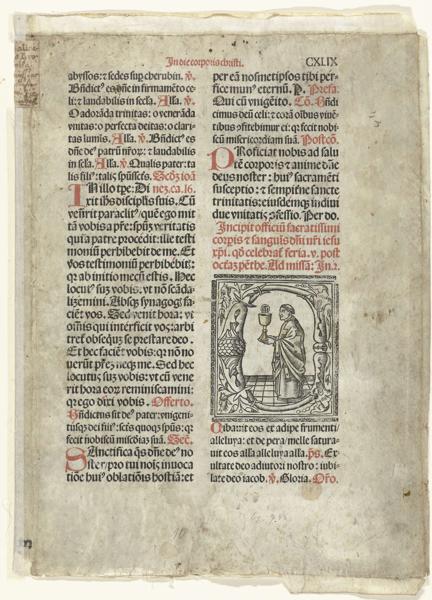 In die corporis christi.
CXLIX
abyssos: & sedes sup cherubin. ℣.
Bñdict' es dñe in firmamẽto ce
li: & laudabilis in secla. Alla. ℣.
O adorãda trinitas: o venerãda
vnitas: o perfecta deitas: o clari
tas luminis. Alla. ℣. Bñdict' es
dñe de' patrũ nr̃or: & laudabilis
in secla. Alla. ℣. Qualis pater: ta
lis fili': talis spũsscũs. Scd'm ioã
IN illo tpe: Di nez. ca. 16.
xit ihs discipulis suis. Cũ
venerit paraclit' quẽ ego mit
tã vobis a pr̃e: spũz veritatis
qui a patre procedit: ille testi
moniũ perhibebit de me. Et
vos testimoniũ perhibebitis:
qz ab initio mecũ estis. Hec
locut' suz vobis: vt nõ scãda
lizemini. Absqz synagogis fa
ciẽt vos. Sed venit hora: vt
omnis qui interficit vos: arbi
tret obsequiz se prestare deo.
Et hec faciẽt vobis: qz nõ no
uerũt pr̃ez neqz me. Sed hec
locutus suz vobis: vt cũ vene
rit hora eor: reminiscamini:
qz ego dixi vobis. Offerto.
Bñdictus sit de' pater: vnigeni
tusqz dei fili': scũs quoqz spũs: qz
fecit nobiscũ miscdiaz suã. Sec.
SAnctifica qs dñe de' no
ster: pro tui nois inuoca
tiõe hui' oblatiõis hostiã: et
per eã nosmetipsos tibi per
fice mun' eternũ. P. Prefa.
Qui cũ vnigẽito. Cõ. Bñdi
cimus deũ celi: & corã oĩbus viuẽ
tibus cõfitebimur ei: qz fecit nobis
cũ misericordiam suã. Postcõ.
PRoficiat nobis ad salu
tẽ corporis & anime dñe
deus noster: hui' sacramẽti
susceptio: & sempitne sancte
trinitatis: eiusdemqz indiui
due vnitatis cõfessio. Per do.
Incipit officiũ sacratissimi
corpis & sanguis dñi nr̃i iesu
xp̃i. qd celebrat feria. v. post
octaz pẽthe. Ad missã: In.2.
Cibauit eos ex adipe frumenti
alleluya: et de petra melle satura
uit eos alla alleluya alla. ps. Ex
ultate deo adiutori nostro: iubi
late deo iacob. ℣. Gloria. Or̃o.